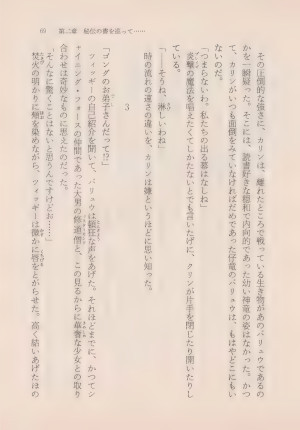 69 第二章 秘伝の書を追って……
その圧倒的な強さに、カリンは、離れたところで戦っている生き物があのバリュウであるの
かを一瞬疑った。そこには、読書好きな穏和で内向的であった幼い神竜の姿はなかった。かつ
て、カリンがいつも面倒をみていなければだめであった仔竜のバリュウは、もはやどこにもい
ないのだ。
「つまらないわ。私たちの出る幕はなしね」
炎撃の魔法を唱えたくてしかたないとでも言いたげに、クリンが片手を閉じたり開いたりし
ている。
「――そうね、淋しいわね」
時の流れの速さの違いを、カリンは嫌というほどに思い知った。
3
「ゴングのお弟子さんだって!?」
フィッギーの自己紹介を聞いて、バリュウは頓狂な声をあげた。それほどまでに、かつてシ
ャイニング・フォースの仲間であった大男の修道僧と、この見るからに華奢な少女との取り
合わせは奇妙なものに思えたのだった。
「そんなに驚くことはないと思うんですけどお……」
焚火の明かりに頬を染めながら、フィッギーは微かに唇をとがらせた。高く結いあげたほの